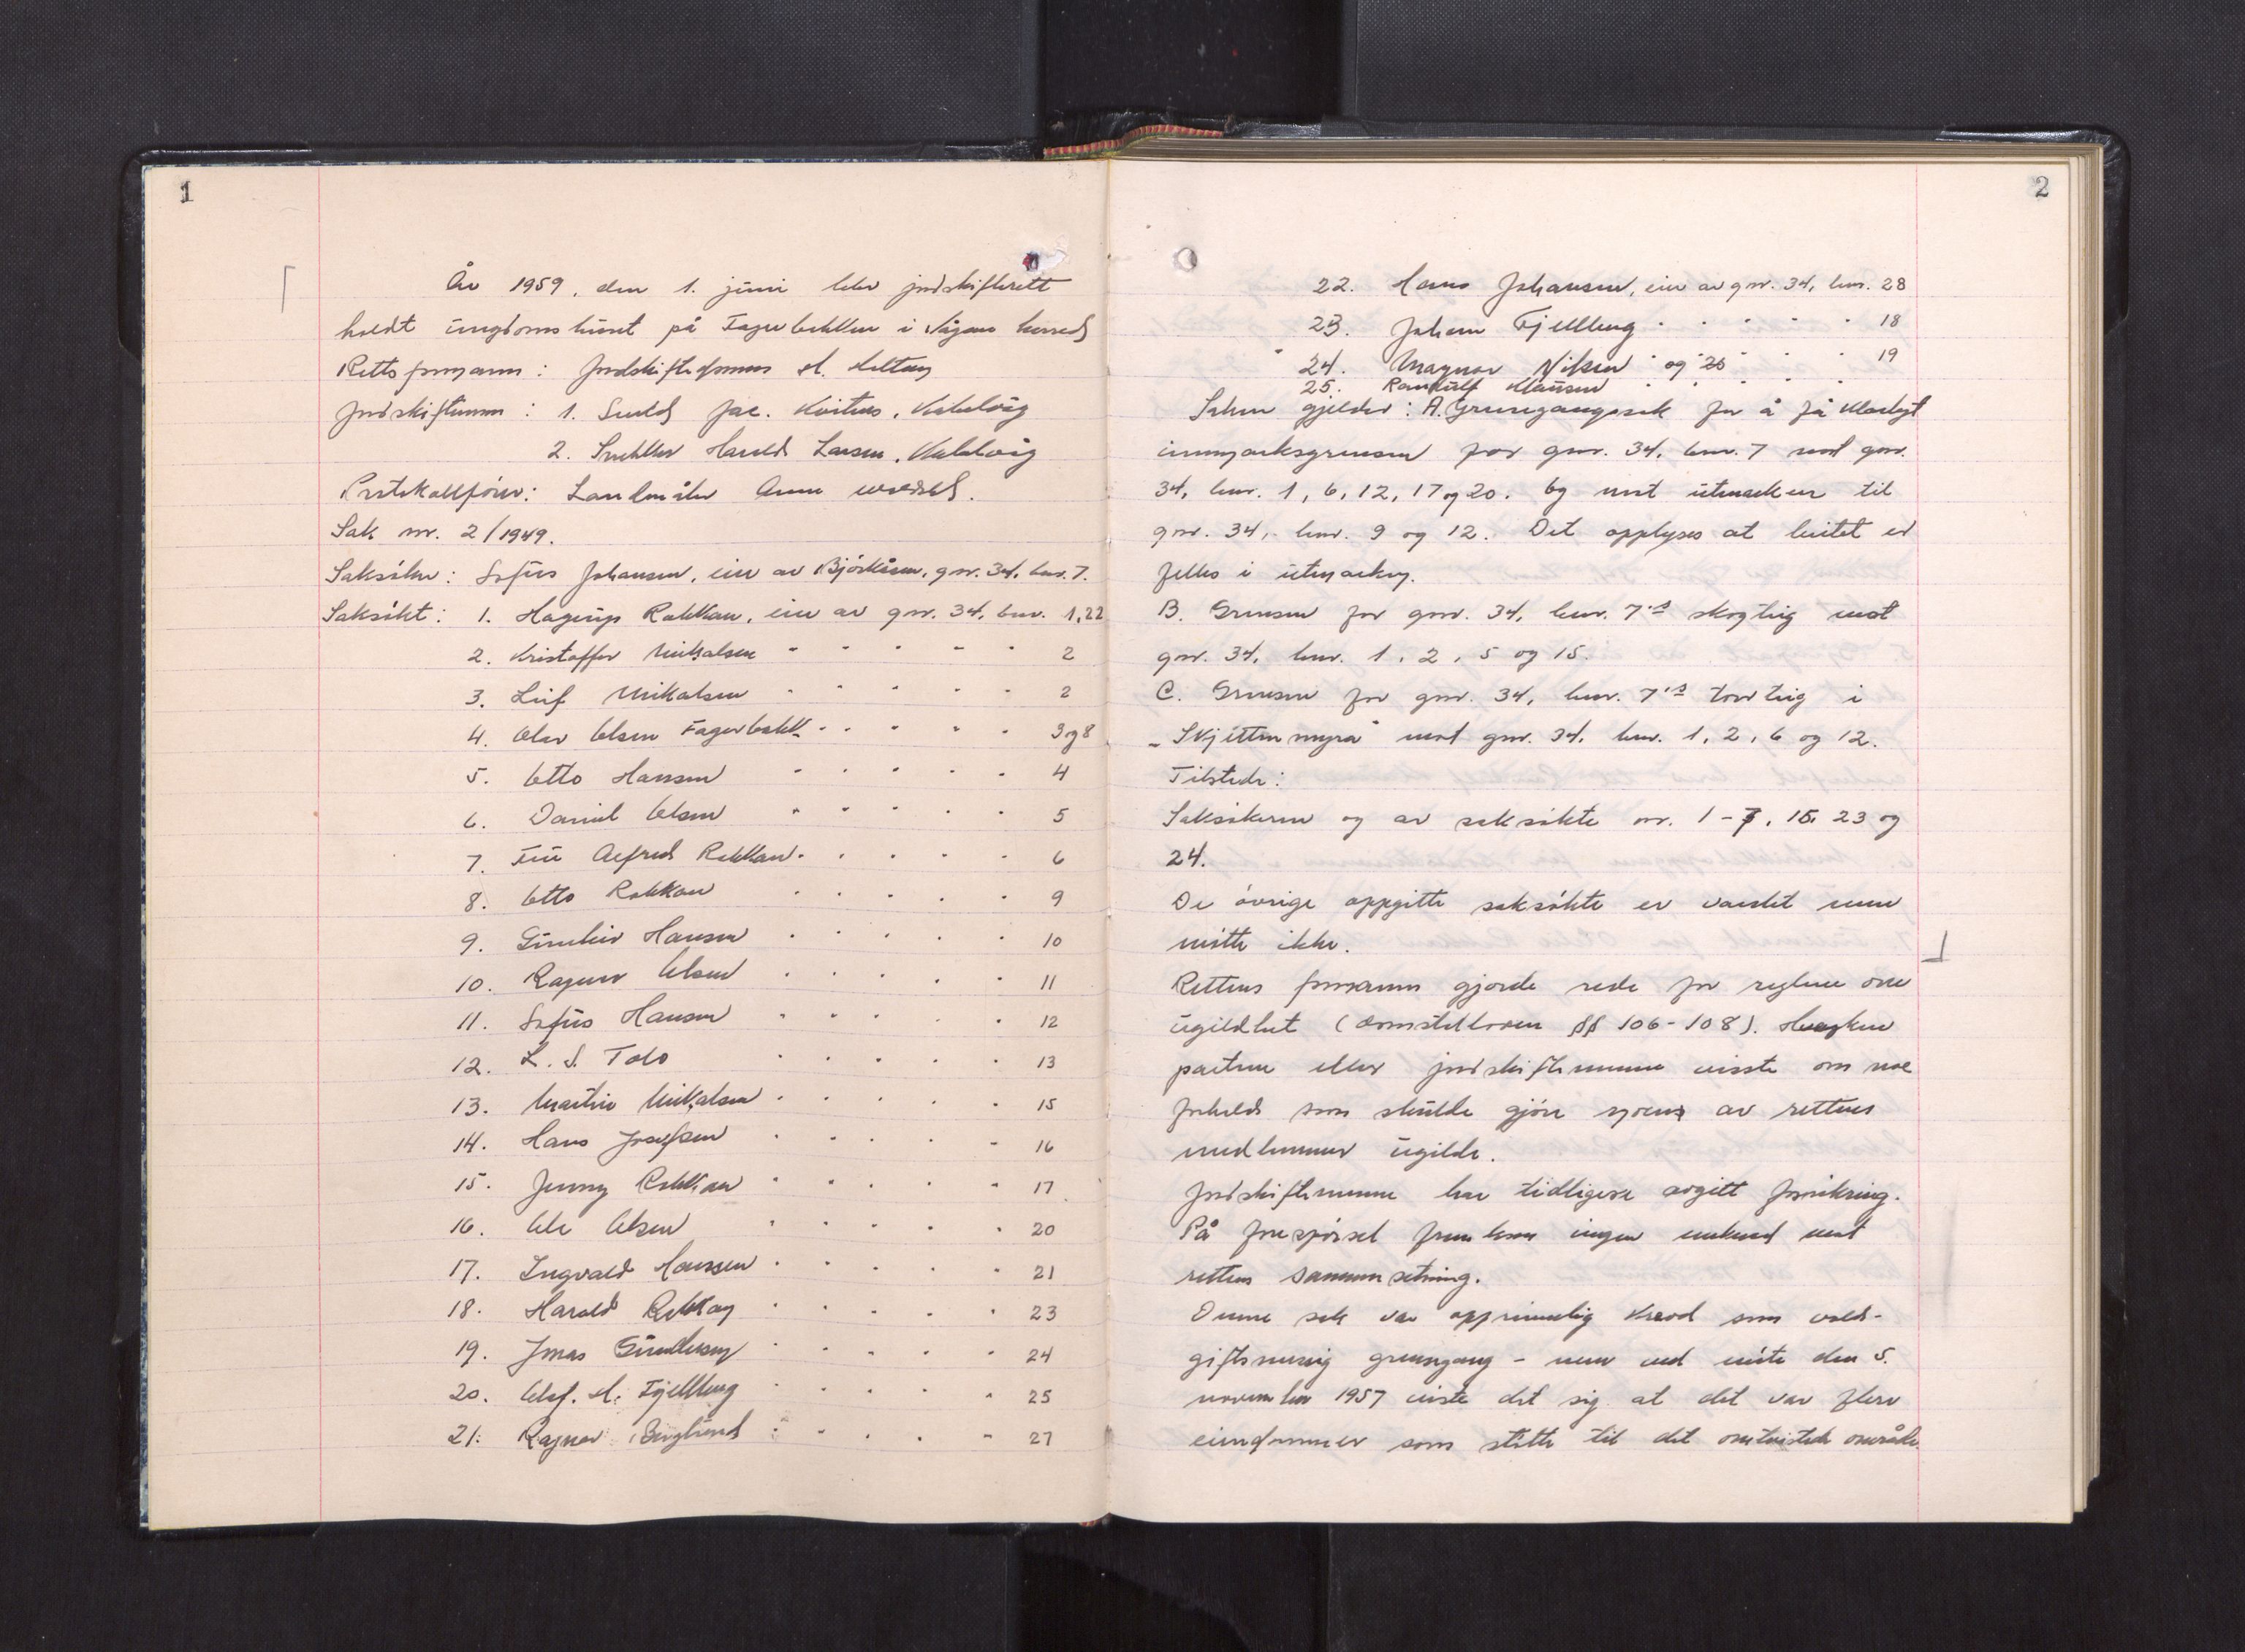 1
År 1959, den 1. juni blev jordskifterett
holdt ungdomshuset på Fagerbakken i Vågan herred
Rettsformann: Jordskifteformann
Jordskiftemenn: 1. Jac. Kabelvåg
2. Snekker Harald Larsen, Kabelvåg
Protokollfører: Landmåler Arne
Sak nr. 2/1949.
Saksøker: Sofus Johansen, eier av Bjørkåsen, gnr. 34, bnr. 7.
Saksøkt: 1. Hagerup Rekkan, eier av gnr. 34, bnr. 1,22
2. Kristoffer Mikalsen " " " " " 2
3. Leif Mikalsen " " " " " 2
4. Olav Olsen Fagerbakk " " " " " 3 og 8
5. Otto Hansen " " " " " 4
6. Daniel Olsen " " " " " 5
7. Fru Alfred Rekkan " " " " " 6
8. Otto Rekkan " " " " " 9
9. Hansen " " " " " 10
10. Ragnar Olsen " " " " " 11
11. Sofus Hansen " " " " " 12
12. L. S. Tolo " " " " " 13
13. Martin Mikalsen " " " " " 15
14. Hans Josefsen " " " " " 16
15. Jenny Rekkan " " " " " 17
16. Ole Olsen " " " " " 20
17. Ingvald Hanssen " " " " " 21
18. Harald Rekkan " " " " " 23
19. Jonas Gundersen " " " " " 24
20. Olaf. M. Fjellberg " " " " " 25
21. Ragnar Berglund " " " " " 27
2
22. Hans Johansen, eier av gnr. 34, bnr. 28
23. Johan Fjellberg " " " " " 18
24. Magnar Nilsen " og 26 " " " 19
25. Randulf Klausen " " " " "
Saken gjelder: A. Grensegangssak for å få klarlagt
innmarksgrensen for gnr. 34, bnr. 7 mot gnr.
34, bnr. 1, 6, 12, 17 og 20. Og mot utmarken til
gnr. 34, bnr. 9 og 12. Det opplyses at beitet er
felles i utmarken.
B. Grensen for gnr. 34, bnr. 7's skogteig mot
gnr. 34, bnr. 1, 2, 5 og 15.
C. Grensen for gnr. 34, bnr. 7's torvteig i
"Skjittenmyra" mot gnr. 34, bnr. 1, 2, 6 og 12.
Tilstede:
Saksøkeren og av saksøkte nr. 1-7, 15, 23 og
24.
De øvrige oppgitte saksøkte er varslet men
møtte ikke.
Rettens formann gjorde rede for reglene om
ugildhet (domstolloven §§ 106-108). Hverken
partene eller jordskiftemennene visste om noe
forhold som skulde gjøre noen av rettens
medlemmer ugilde.
Jordskiftemennene har tidligere avgitt forsikring.
På forespørsel fremkom ingen merknad mot
rettens sammensetning.
Denne sak var opprinnelig krevd som vold-
giftsmessig grensegang - men ved møte den 5.
november 1957 viste det sig at det var flere
eiendommer som støtte til det omtvistede område